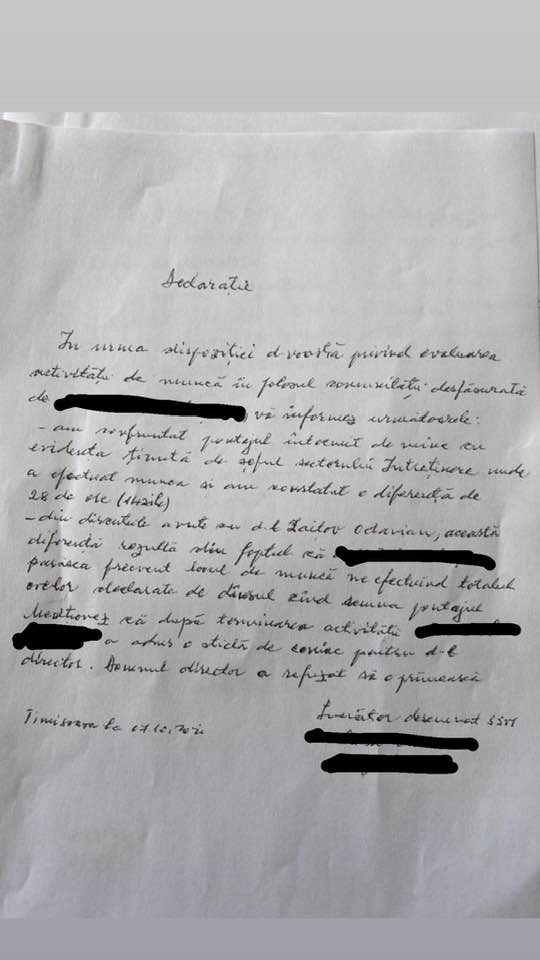 Declarație
In urma dispoziției d-voastră privind evaluarea
activității de muncă în folosul comunității desfășurată
de , vă informez următoarele:
- am confruntat pontajul întocmit de mine cu
evidența ținută de șeful sectorului Întreținere unde
a efectuat munca si am constatat o diferență de
28 de ore (14zile)
- din discutiile avute cu d-l Zaitov Octavian, această
diferență rezultă din faptul că
părăsea frecvent locul de muncă ne efectuind totalul
orelor declarate de dinsul cind semna pontajul
Menționez că după terminarea activității
a adus o sticlă de coniac pentru d-l
director. Domnul director a refuzat să o primească
Timisoara la 07.10.
Lucrător desemnat SSM